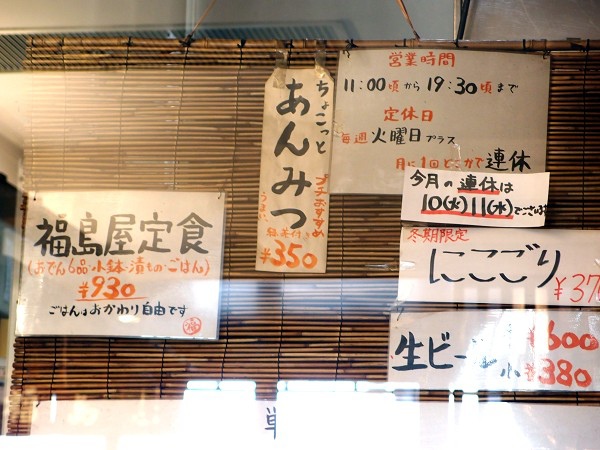 福島屋定食
(おでん6品・小鉢・漬もの・ごはん)
¥930
ごはんはおかわり自由です
ちょこっと
あんみつ
プチおすすめ
¥350
営業時間
11:00頃から19:30頃まで
定休日
毎週火曜日プラス
月に1回どこかで連休
今月の連休は
10(火)11(水)でございます
冬期限定
にこごり
¥37
生ビール
¥600
小¥380
単